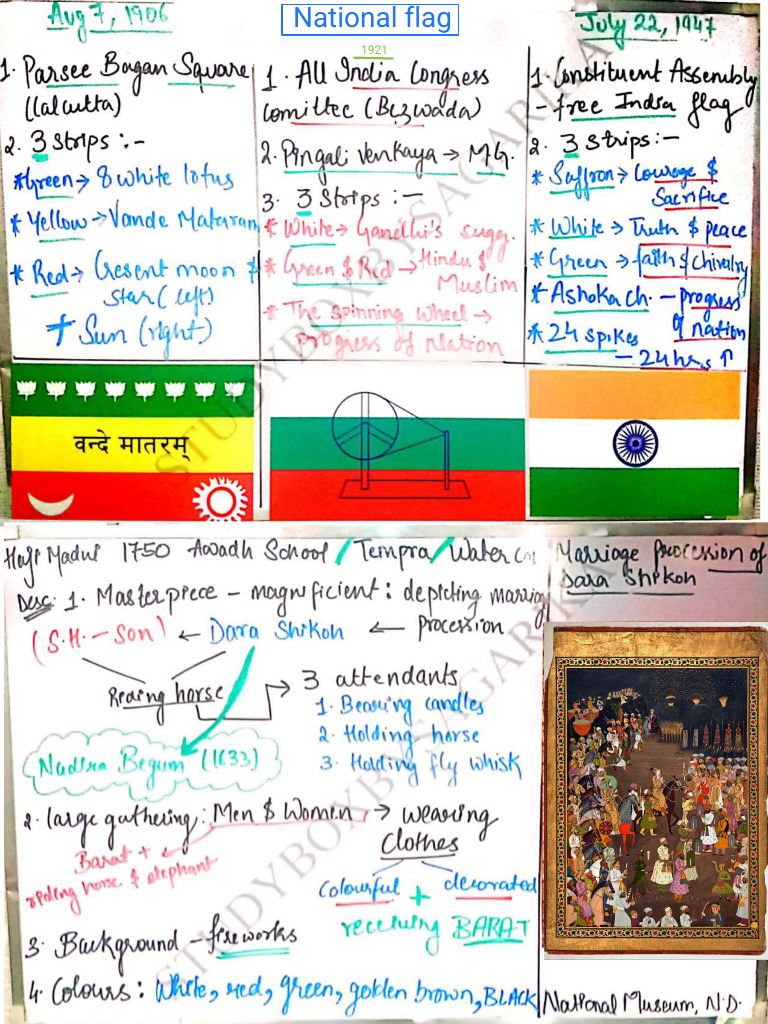 National flag
Aug 7, 1906
1. Parsee Bagan Square
(Calcutta)
2. 3 Strips :-
*Green → 8 white lotus
* Yellow → Vande Mataram
* Red → Cresent moon &
star (left)
+ Sun (right)
1921
1. All India Congress
Comittee (Bezwada)
2. Pingali Venkaya → M.G.
3. 3 Strips :-
* White → Gandhi's sugg.
* Green & Red → Hindu &
Muslim
* The spinning wheel →
progress of Nation
July 22, 1947
1. Constituent Assembly
- free India flag
2. 3 strips :-
* Saffron → Courage &
Sacrifice
* White → Truth & peace
* Green → faith & chivalry
* Ashoka ch. - progress
of nation
* 24 spikes
- 24 hrs ↑
वन्दे मातरम्
Haji Madni 1750 Awadh School / Tempra / Water Co
Marriage Procession of
Dara Shikoh
Desc: 1. Masterpiece - magnificient : depicting marriag
(S.H. - Son) ← Dara Shikoh ← procession
Rideing horse → 3 attendants
1. Bearing candles
2. Holding horse
3. Holding fly whisk
Nadira Begum (1633)
2. large gathering : Men & Women → wearing
Clothes
Barat +
riding horse & elephant
Colourful + decorated
receiving BARAT
3. Background - fireworks
4. Colours : White, red, green, golden brown, BLACK
National Museum, N.D.
STUDYBOXBYSAGARIKA
STUDYBOXBYSAGARIKA